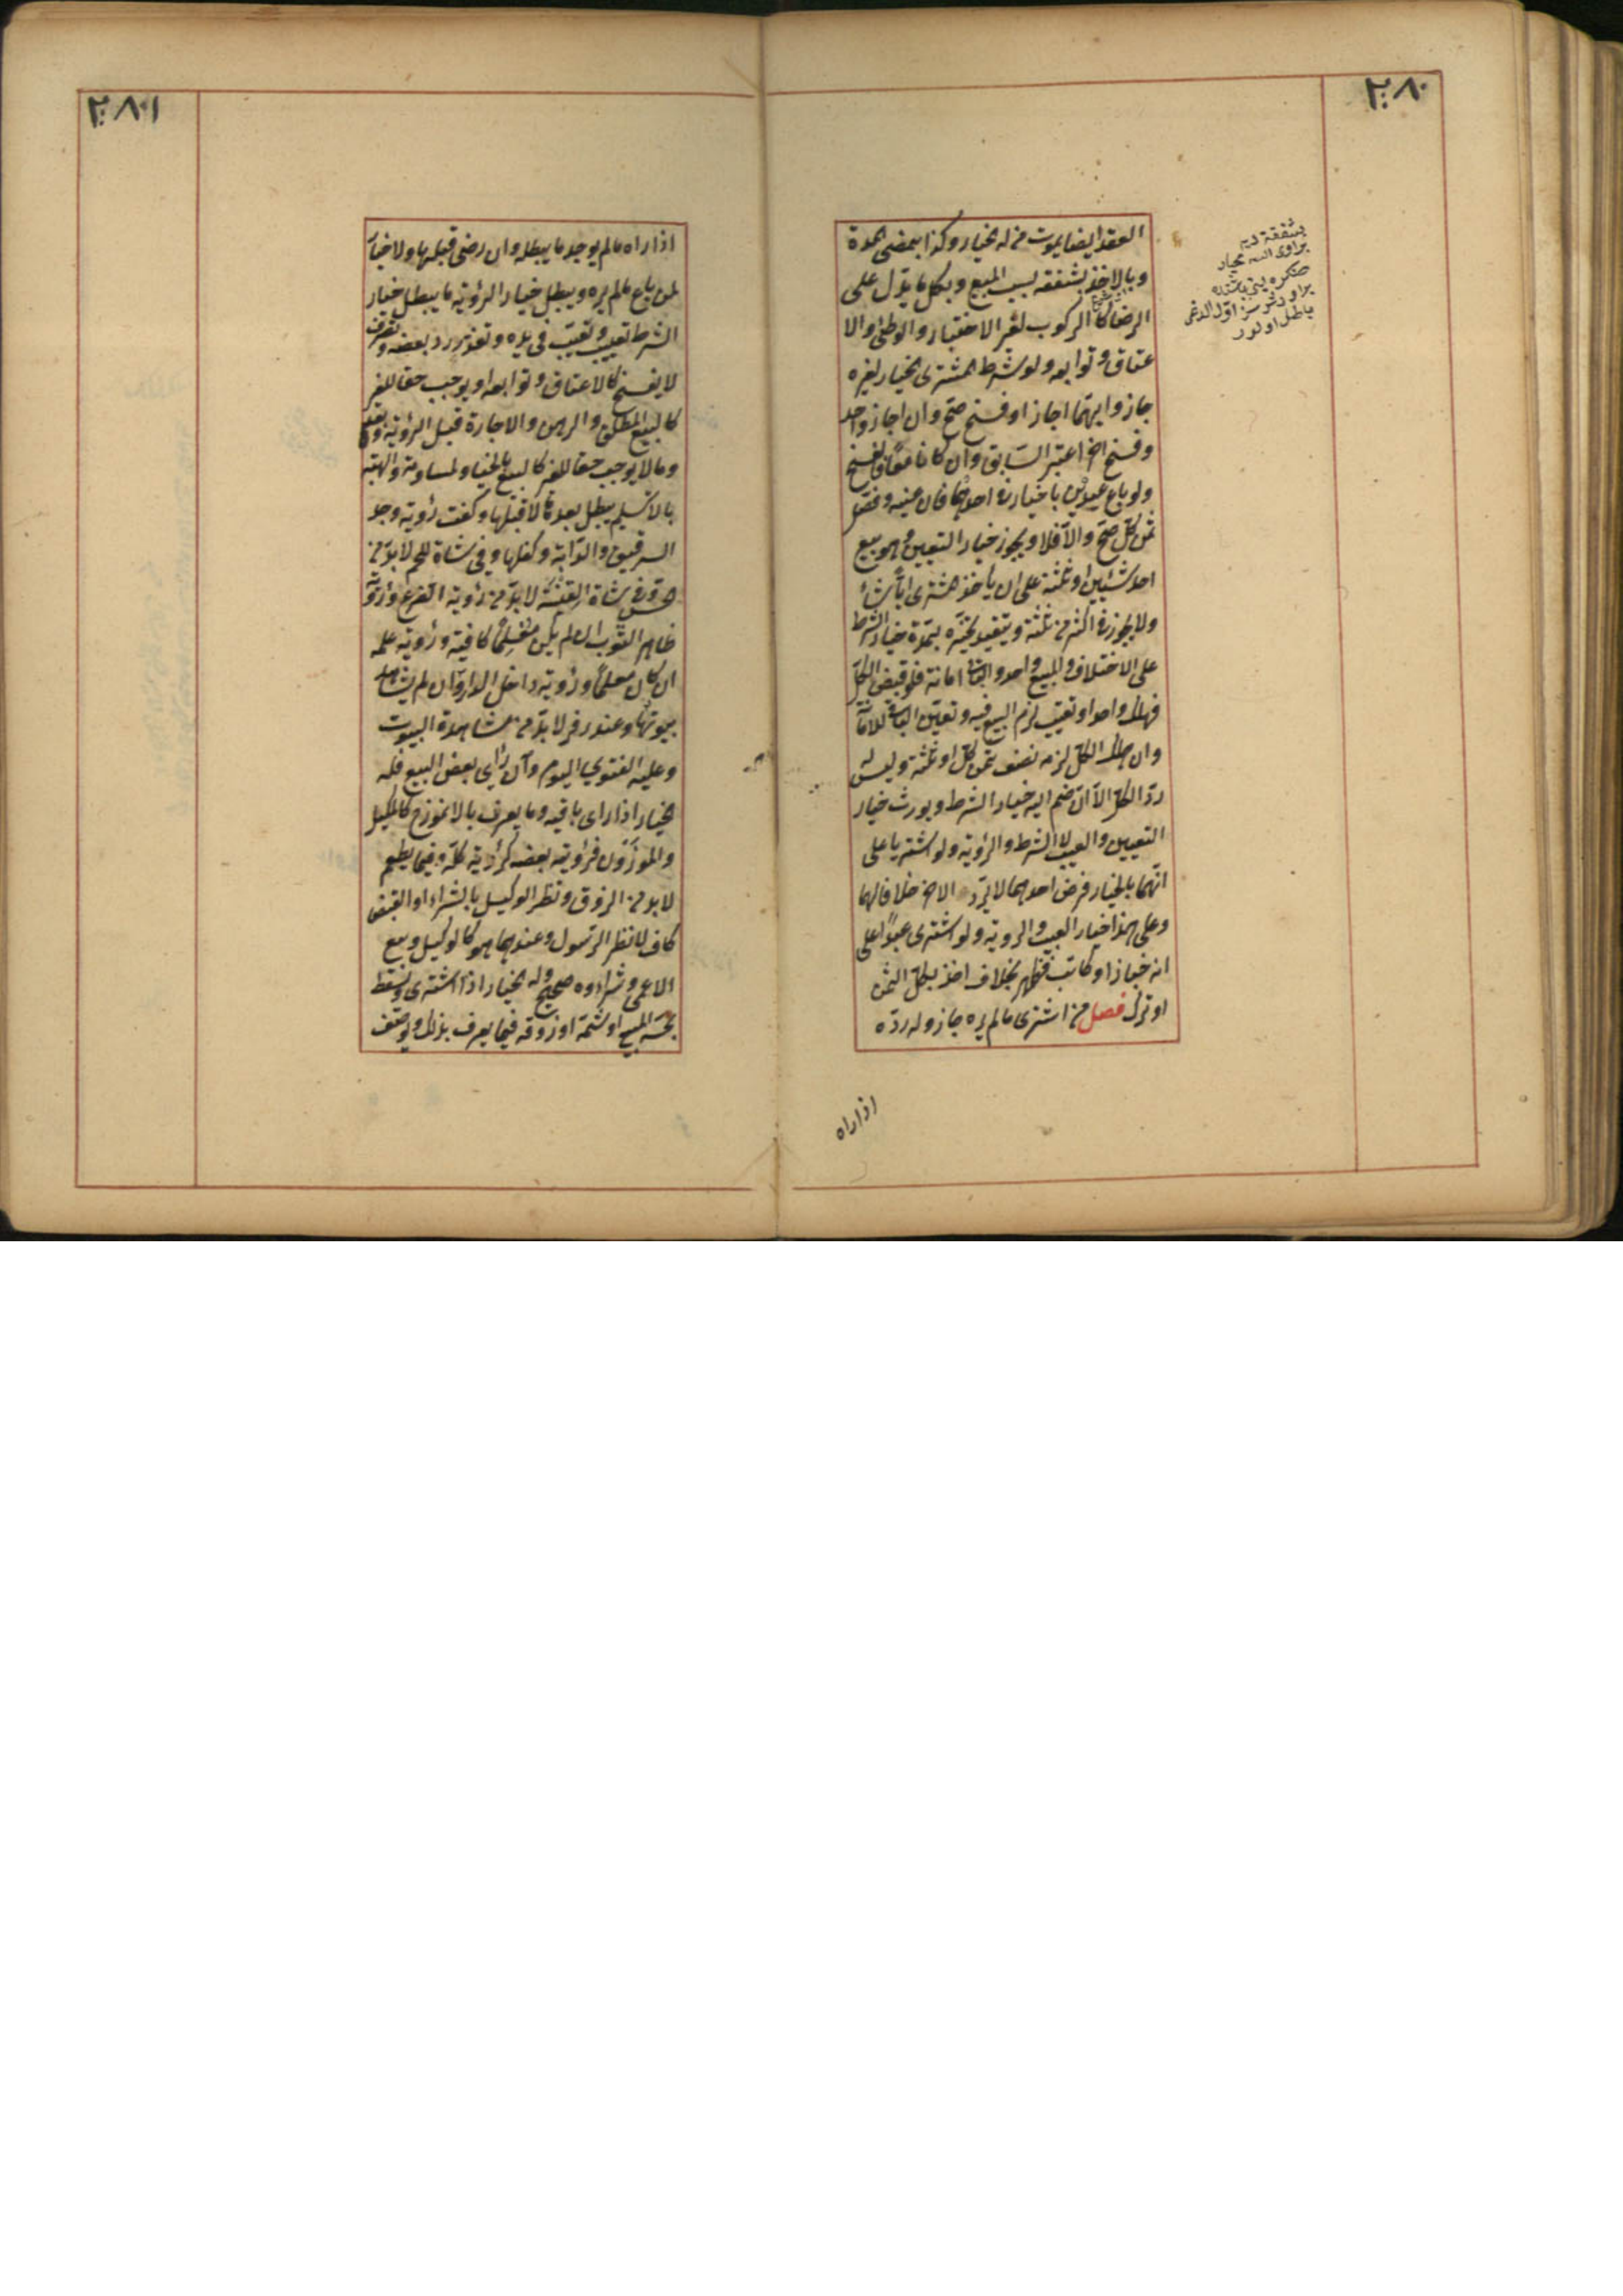 ٢٨٠
العقد ايضا بموت من له الخيار وكذا بمضى المدة
وبالاخذ بشفعة بسبب المبيع وبكل ما يدل على
الرضا كالركوب لغير الاختبار والوطئ والا
عتاق وتوابعه ولو شرط المشترى الخيار لغيره
جاز وايهما اجاز او فسخ صح وان اجاز واحد
وفسخ اخر اعتبر السابق وان كانا معا فالفسخ
ولو باع عبدين بالخيار فى احدهما فان عينه وفصل
ثمن كل صح والا فلا ويجوز خيار التعيين وهو بيع
احد شيئين او ثلثة على ان ياخذ المشترى ايا شاء
ولا يجوز فى اكثر من ثلثة ويتقيد تخيره بمدة خيار الشرط
على الاختلاف والمبيع واحد والباقى امانة فلو قبض الكل
فهلك واحد او تعيب لزم البيع فيه وتعين الباقى للامانة
وان هلك الكل لزمه نصف ثمن كل او ثلثه وليس له
رد الكل الا ان ضم اليه خيار الشرط ويورث خيار
التعيين والعيب لا الشرط والرؤية ولو اشتريا على
انهما بالخيار فرضى احدهما لا يرد الاخر خلافا لهما
وعلى هذا خيار العيب والرؤية ولو اشترى عبدا على
انه خباز او كاتب فظهر بخلافه اخذ بكل الثمن
او ترك فصل من اشترى ما لم يره جاز وله رده
اذا راه
بشفعة ديه
باطل اولور
٢٨١
اذا راه ما لم يوجد ما يبطله وان رضى قبلها ولا خيار
لمن باع ما لم يره ويبطل خيار الرؤية ما يبطل خيار
الشرط تعييب وتعيب فى يده وتعذر رد بعضه وتصرف
لا يفسخ كالاعتاق وتوابعه او يوجب حقا للغير
كالبيع المطلق والرهن والاجارة قبل الرؤية وبعدها
وما لا يوجب حقا للغير كالبيع بالخيار والمساومة والهبة
بلا تسليم يبطل بعدها لا قبلها وكفت رؤية وجه
الرقيق والدابة وكفلها وفى شاة اللحم لا بد من
الجس وفى شاة القنية لا بد من رؤية الضرع ورؤية
ظاهر الثوب ان لم يكن معلما كافية ورؤية علمه
ان كان معلما ورؤية داخل الدار وان لم يشاهد
بيوتها وعند زفر لا بد من مشاهدة البيوت
وعليه الفتوى اليوم وان راى بعض المبيع فله
الخيار اذا راى باقيه وما يعرف بالانموذج كالمكيل
والموزون فرؤية بعضه كرؤية كله وفيما يطعم
لا بد من الذوق ونظر الوكيل بالشراء او القبض
كاف لا نظر الرسول وعندهما هو كالوكيل وبيع
الاعمى وشراؤه صحيح وله الخيار اذا اشترى ويسقط
بجسه المبيع او شمه او ذوقه فيما يعرف بذلك وبوصف